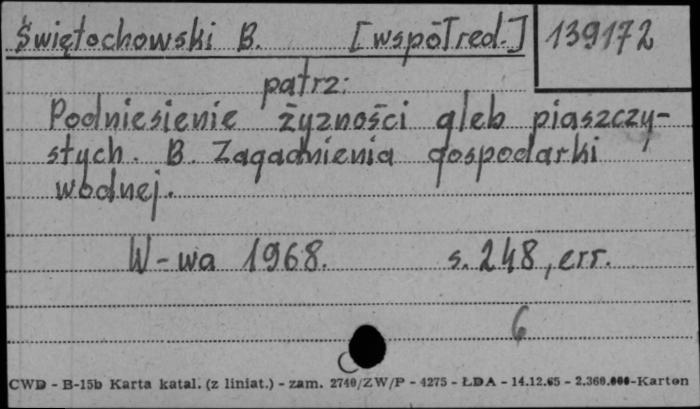 Świętochowski B. [współred.] 139172
patrz:
Podniesienie żyzności gleb piaszczy-
stych. B. Zagadnienia gospodarki
wodnej.
W-wa 1968. s. 248, err.
6
CWD - B-15b Karta katal. (z liniat.) - zam. 2740/ZW/P - 4275 - ŁDA - 14.12.65 - 2.360.000-Karton